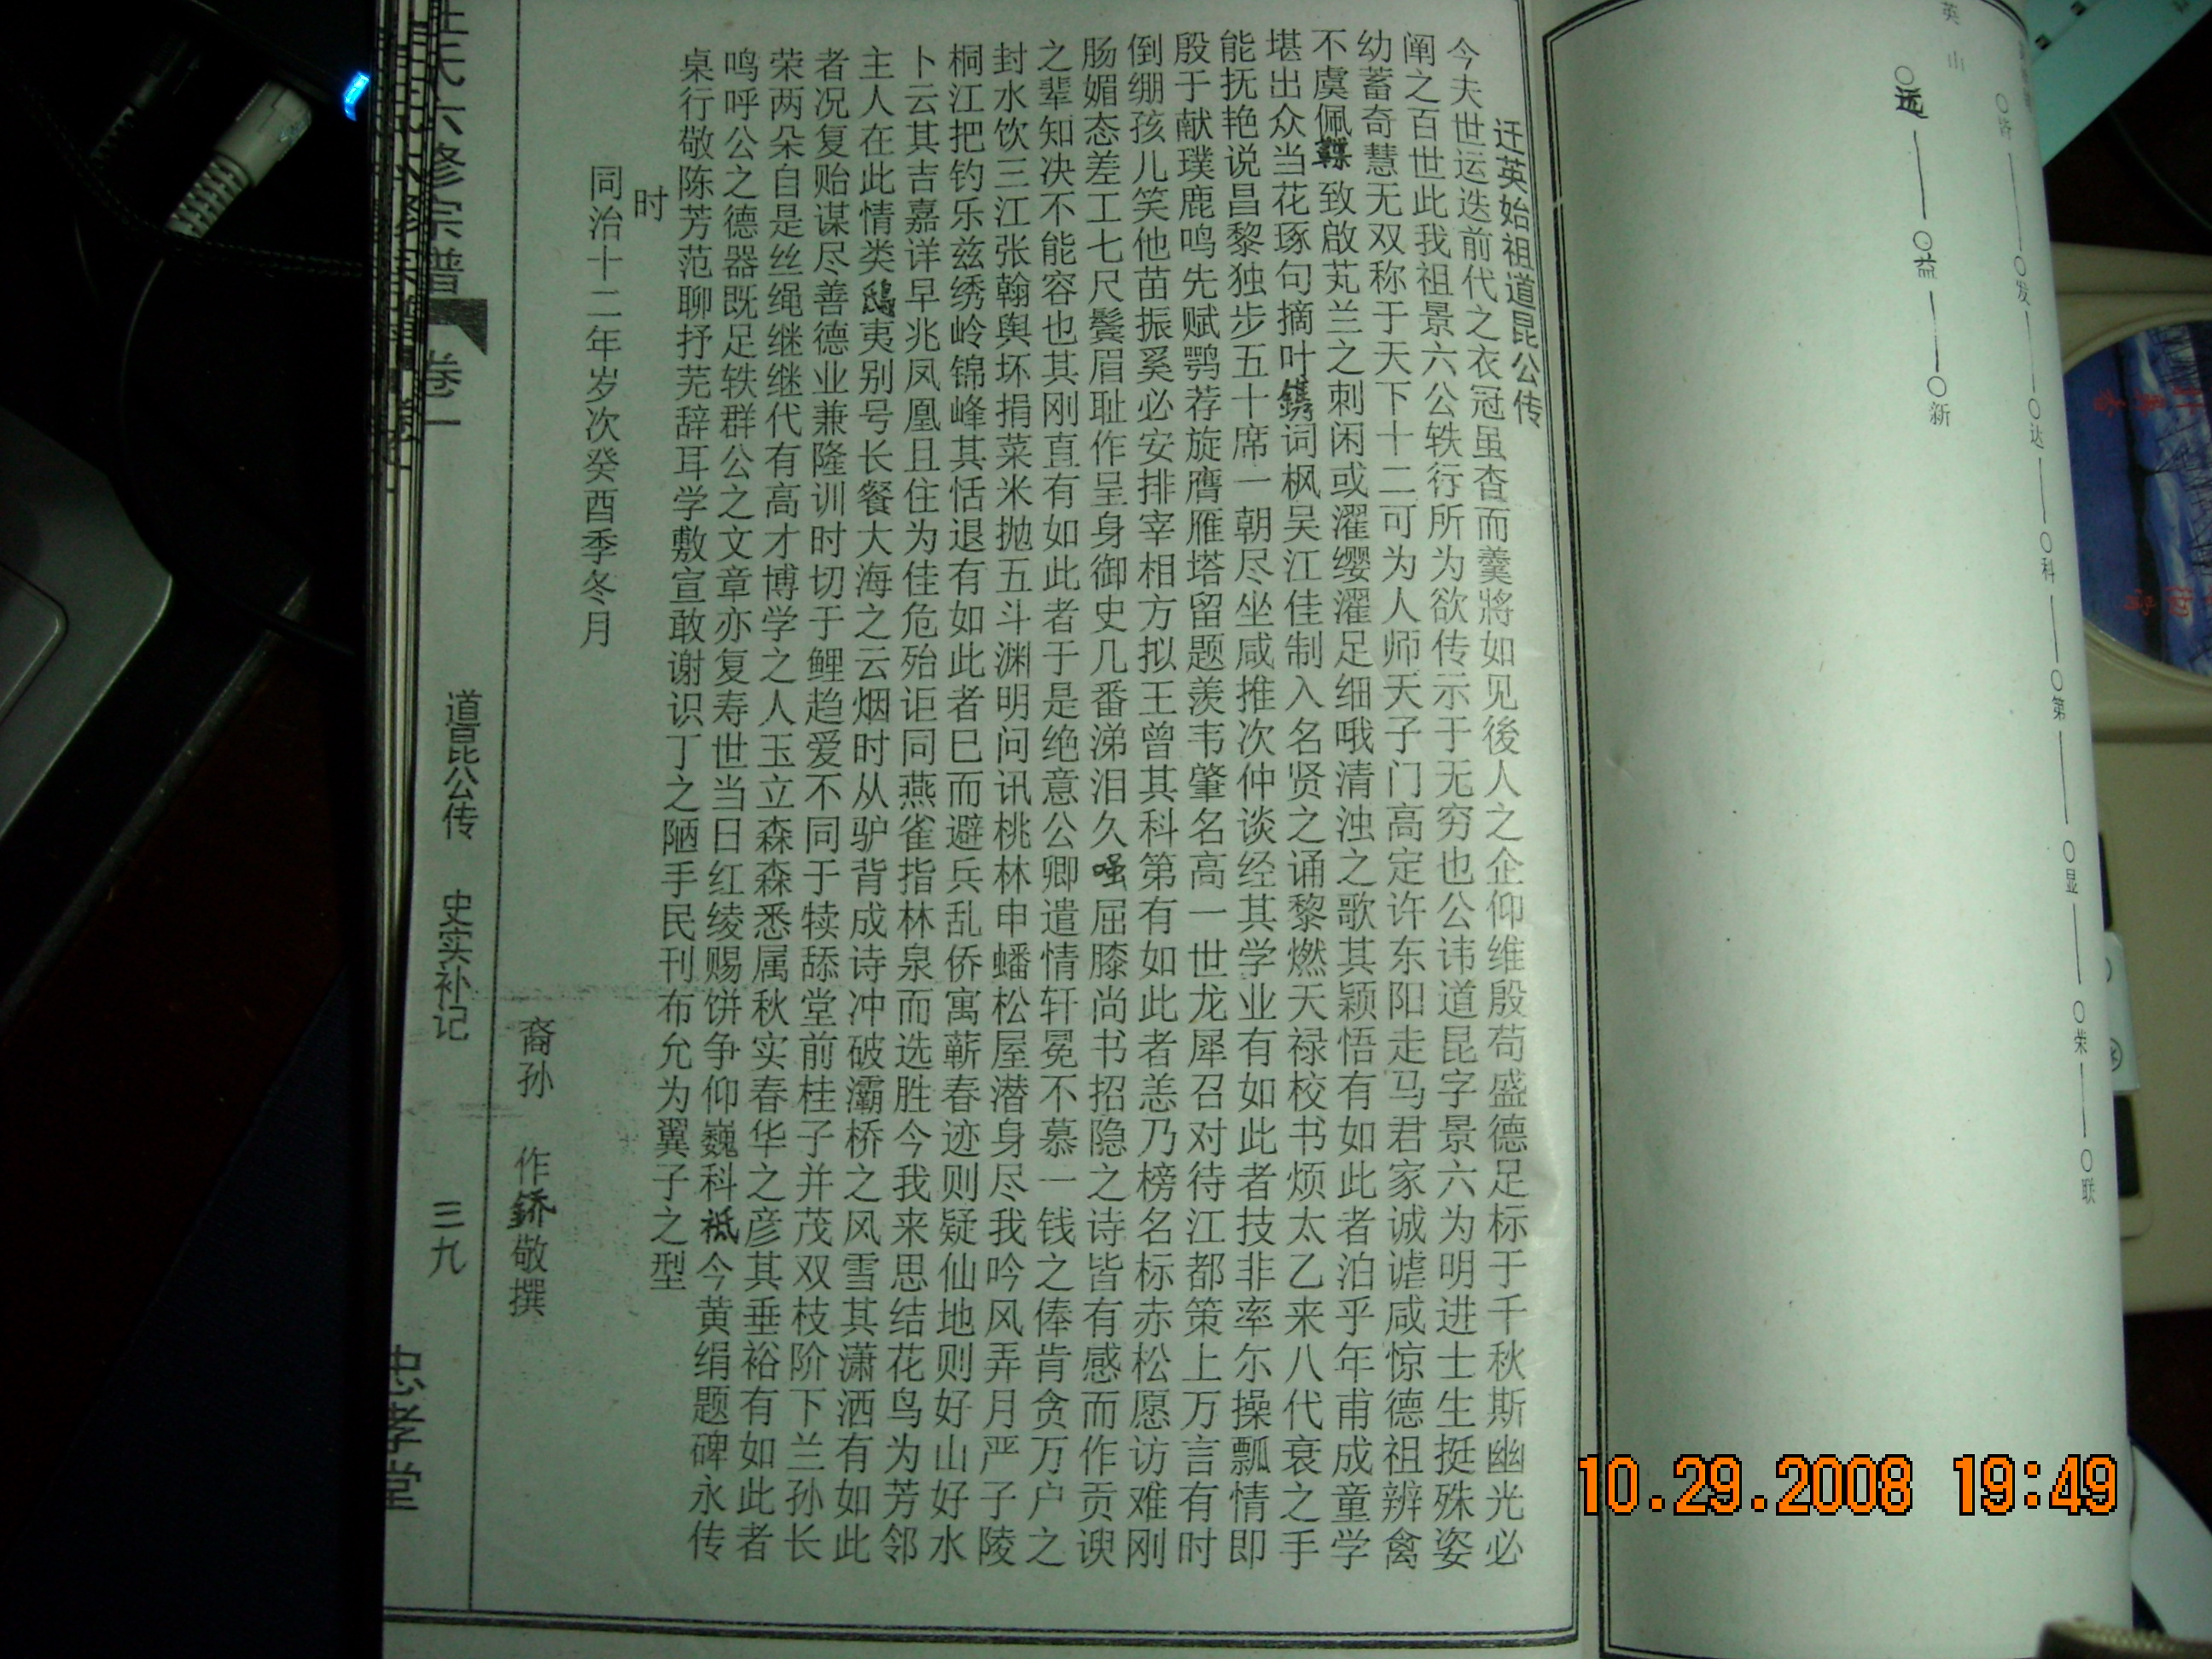 英山
○皆○发○达○科○第○显○荣○联
○远○益○新
迁英始祖道昆公传
今夫世运迭前代之衣冠虽杳而羹將如见後人之企仰维殷苟盛德足标于千秋斯幽光必
阐之百世此我祖景六公轶行所为欲传示于无穷也公讳道昆字景六为明进士生挺殊姿
幼蓄奇慧无双称于天下十二可为人师天子门高定许东阳走马君家诚谑咸惊德祖辨禽
不虞佩韘致啟芄兰之刺闲或濯缨濯足细哦清浊之歌其颖悟有如此者泊乎年甫成童学
堪出众当花琢句摘叶鐫词枫吴江佳制入名贤之诵黎燃天禄校书烦太乙来八代衰之手
能抚艳说昌黎独步五十席一朝尽坐咸推次仲谈经其学业有如此者技非率尔操瓢情即
殷于献璞鹿鸣先赋鹗荐旋膺雁塔留题羡韦肇名高一世龙犀召对待江都策上万言有时
倒绷孩儿笑他苗振奚必安排宰相方拟王曾其科第有如此者恙乃榜名标赤松愿访难刚
肠媚态差工七尺鬓眉耻作呈身御史几番涕泪久嗤屈膝尚书招隐之诗皆有感而作贡谀
之辈知决不能容也其刚直有如此者于是绝意公卿遣情轩冕不慕一钱之俸肯贪万户之
封水饮三江张翰舆坏捐菜米抛五斗渊明问讯桃林申蟠松屋潜身尽我吟风弄月严子陵
桐江把钓乐兹绣岭锦峰其恬退有如此者巳而避兵乱侨寓蕲春迹则疑仙地则好山好水
卜云其吉嘉详早兆凤凰且住为佳危殆讵同燕雀指林泉而选胜今我来思结花鸟为芳邻
主人在此情类鴟夷别号长餐大海之云烟时从驴背成诗冲破灞桥之风雪其潇洒有如此
者况复贻谋尽善德业兼隆训时切于鲤趋爱不同于犊舔堂前桂子并茂双枝阶下兰孙长
荣两朵自是丝绳继继代有高才博学之人玉立森森悉属秋实春华之彦其垂裕有如此者
鸣呼公之德器既足轶群公之文章亦复寿世当日红绫赐饼争仰巍科祗今黄绢题碑永传
桌行敬陈芳范聊抒芜辞耳学敷宣敢谢识丁之陋手民刊布允为翼子之型
时
同治十二年岁次癸酉季冬月
裔孙 作鐈敬撰
氏六修宗谱 卷一 道昆公传 史实补记 三九 忠孝堂
10.29.2008 19:49